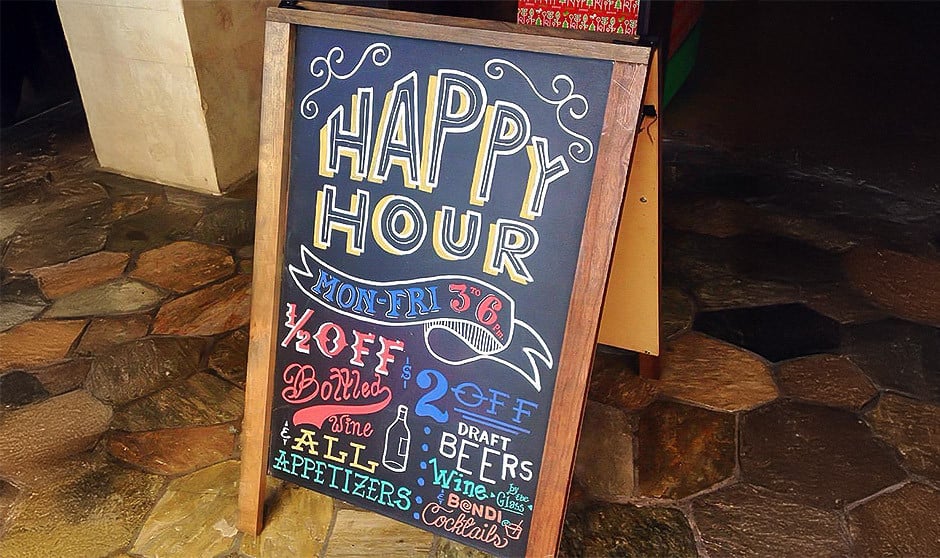 HAPPY
HOUR
MON-FRI 3 TO 6 Pm
1/2 OFF
Bottled
Wine
& ALL
APPETIZERS
$2 OFF
DRAFT
BEERS
Wine by the Glass
& BONDI
Cocktails